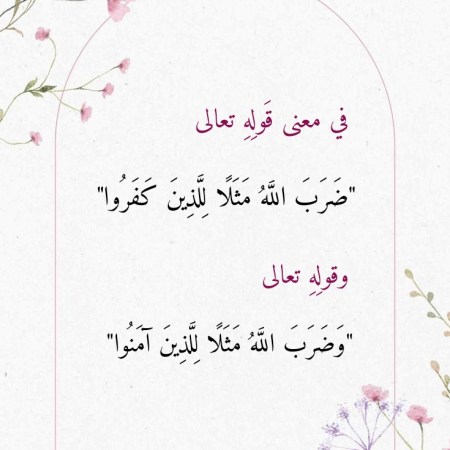 في معنى قَولِهِ تعالى
"ضَرَبَ اللَّهُ مَثَلًا لِلَّذِينَ كَفَرُوا"
وقولِهِ تعالى
"وَضَرَبَ اللَّهُ مَثَلًا لِلَّذِينَ آمَنُوا"